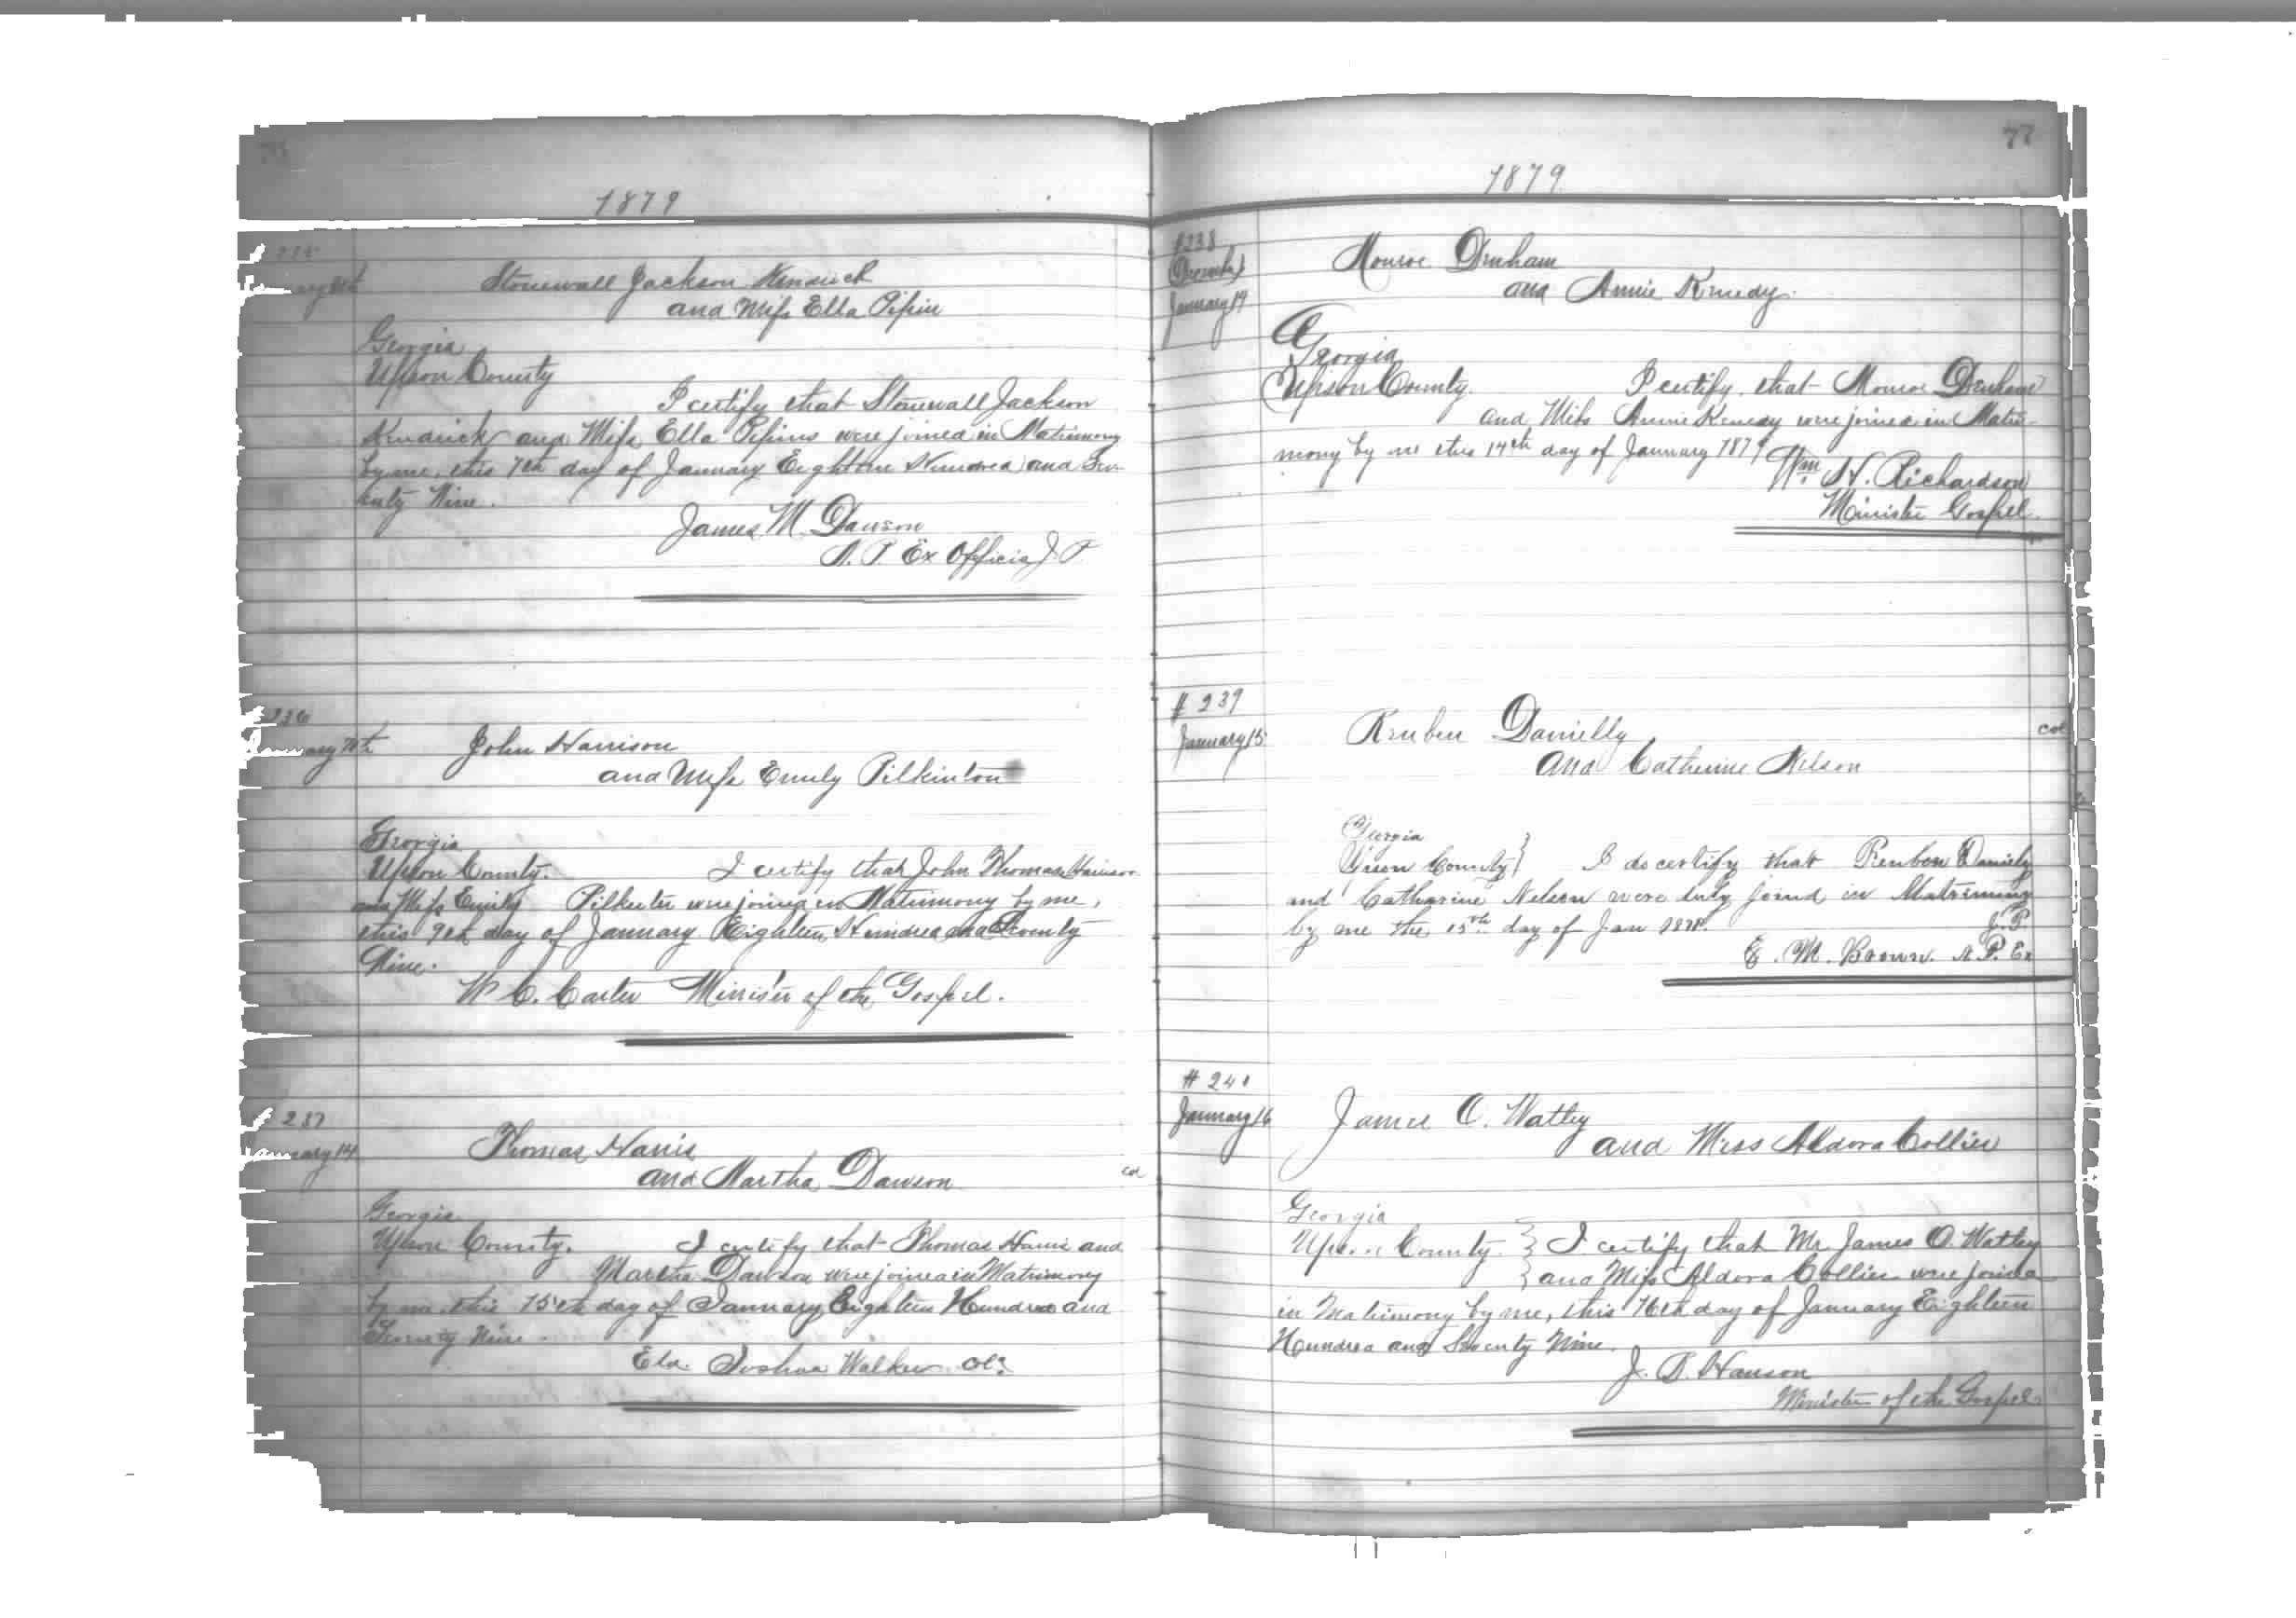 1879
Stonewall Jackson Kendrick
and Miss Ella Pipin
Georgia
Upson County
I certify that Stonewall Jackson
Kendrick and Miss Ella Pipins were joined in Matrimony
by me, this 7th day of January Eighteen Hundred and Sev-
enty Nine.
James M. Dawson
N. P. Ex Officio J. P.
236
January 7th
John Harrison
and Miss Emily Pilkinton
Georgia
Upson County.
I certify that John Thomas Harrison
and Miss Emily Pilkinton were joined in Matrimony by me,
this 9th day of January Eighteen Hundred and Seventy
Nine.
W C. Carter Minister of the Gospel.
237
January 14
Thomas Harris
and Martha Dawson
col
Georgia
Upson County.
I certify that Thomas Harris and
Martha Dawson were joined in Matrimony
by me, this 15th day of January Eighteen Hundred and
Seventy Nine.
Eld. Joshua Walker
77
1879
#238
January 14
Monroe Drnham
and Annie Kenedy
Georgia
Upson County.
I certify that Monroe Drnham
and Miss Annie Kenedy were joined in Matri-
mony by me this 14th day of January 1879
Wm. H. Richardson
Minister Gospel.
# 239
January 15
Reuben Danielly
col
and Catherine Nelson
Georgia
Upson County } I do certify that Reuben Daniely
and Catharine Nelson were duly joind in Matrimony
by me the 15th day of Jan
J. P.
E. M. Brown. N. P. Ex
# 240
January 16
James O. Watley
and Miss Aldora Collier
Georgia
Upson County } I certify that Mr. James O. Watley
} and Miss Aldora Collier were joined
in Matrimony by me, this 16th day of January Eighteen
Hundred and Seventy Nine.
J. B. Hanson
Minister of the Gospel